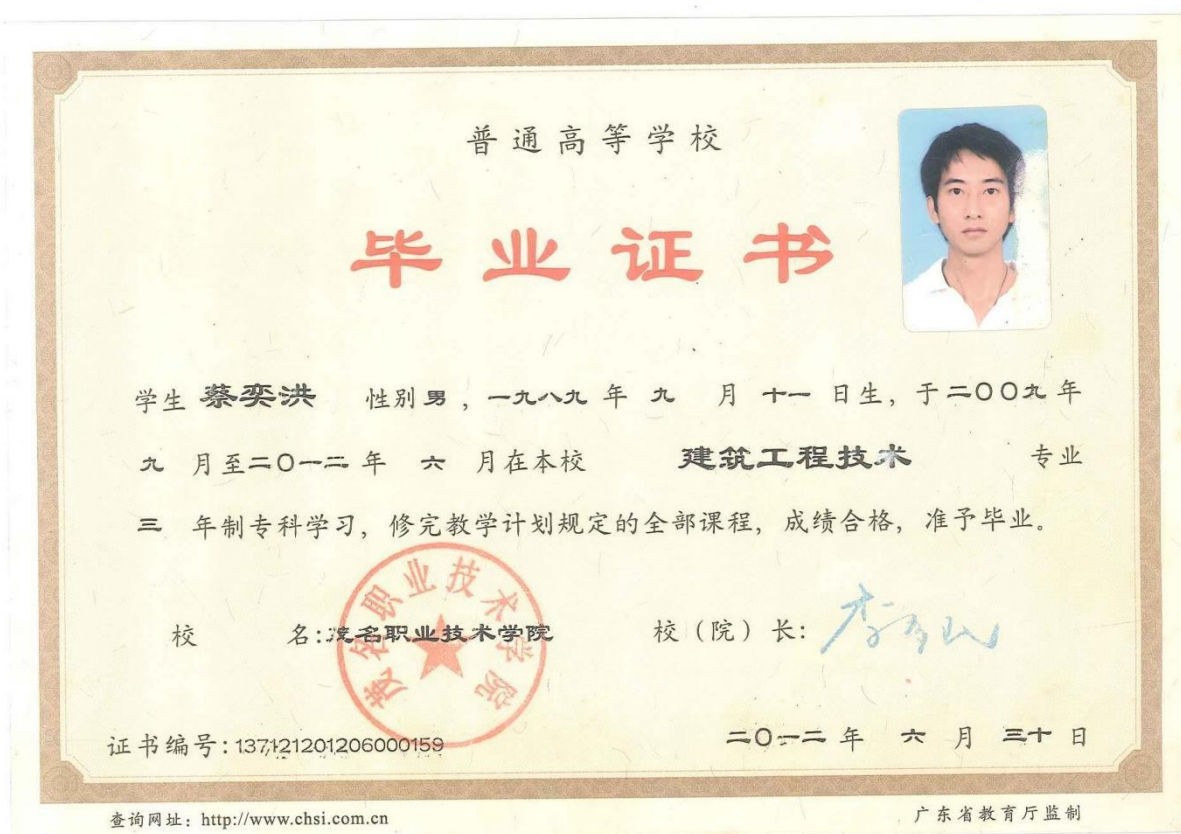 普通高等学校
毕业证书
学生 蔡奕洪 性别 男 , 一九八九 年 九 月 十一 日生, 于二〇〇九 年
九 月至二〇一二 年 六 月在本校 建筑工程技术 专业
三 年制专科学习, 修完教学计划规定的全部课程, 成绩合格, 准予毕业。
茂名职业技术学院
校 名:茂名职业技术学院 校（院）长:
证书编号:137121201206000159 二〇一二 年 六 月 三十 日
查询网址: http://www.chsi.com.cn 广东省教育厅监制